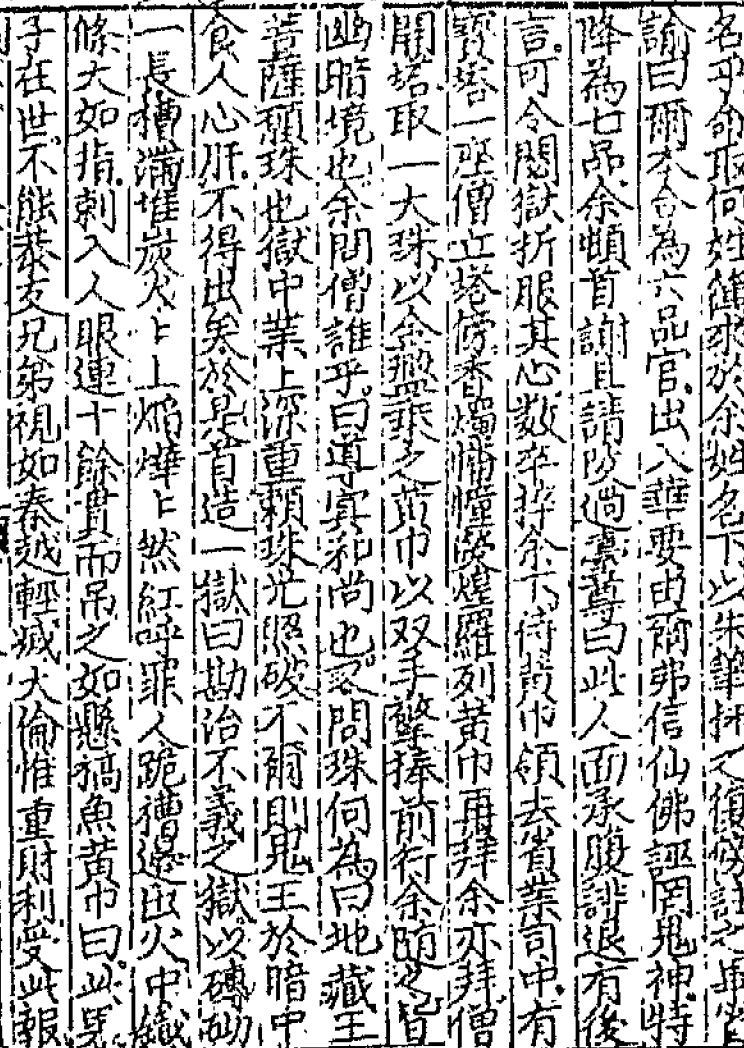 名乎命取何姓簿求於余姓名下以朱筆抹之復傍註之
諭曰爾本合為六品官出入華要由爾弗信仙佛誣罔鬼神特
降為七品余頓首謝且請防過稟尊曰此人面承腹誹退有後
言可令閱獄折服其心数卒捽余下侍黄巾領去省業司中有
寳塔一座僧立塔傍香燭幡幢熒煌羅列黄巾再拜余亦拜僧
開塔取一大珠以金盤乘之黄巾以双手擎捧前行余随之皆
幽暗境也余問僧誰乎曰導冥和尚也又問珠何為曰地藏王
菩薩顖珠也獄中業上深重賴珠光照破不爾則鬼王於暗中
食人心肝不得出矣於是首造一獄曰勘治不義之獄以磚砌
一長槽滿堆炭火上上焰燁上然紅呼罪人跪槽邊出火中鐵
條大如指刺入人眼連十餘貫而吊之如懸槁魚黄巾曰此男
子在世不能恭友兄弟視如秦越輕滅大倫惟重財利受此報